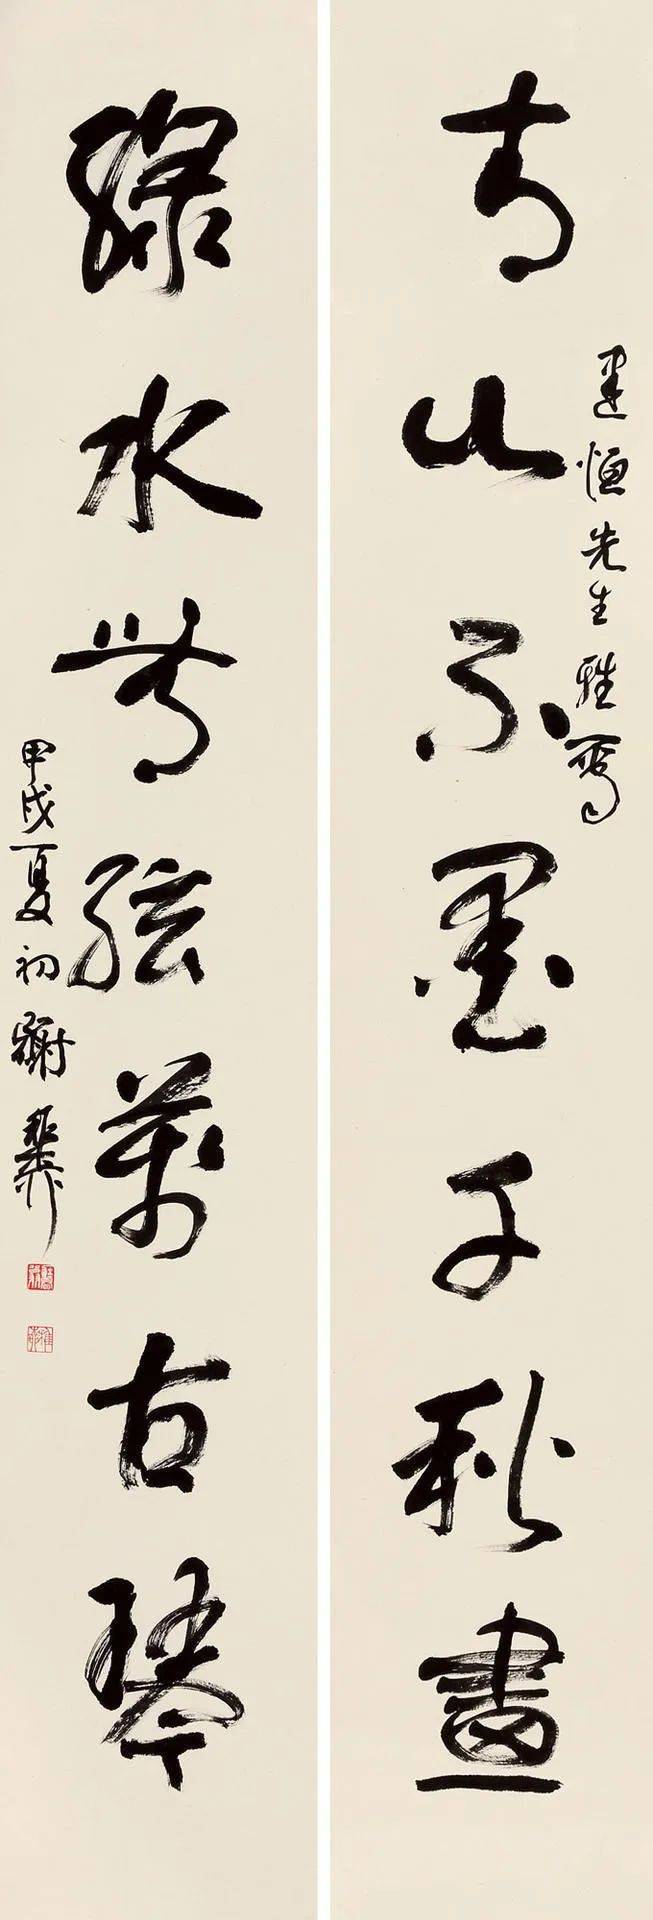 青山不墨千秋畫
建恒先生雅
綠水無弦萬古琴
甲戌夏初謝